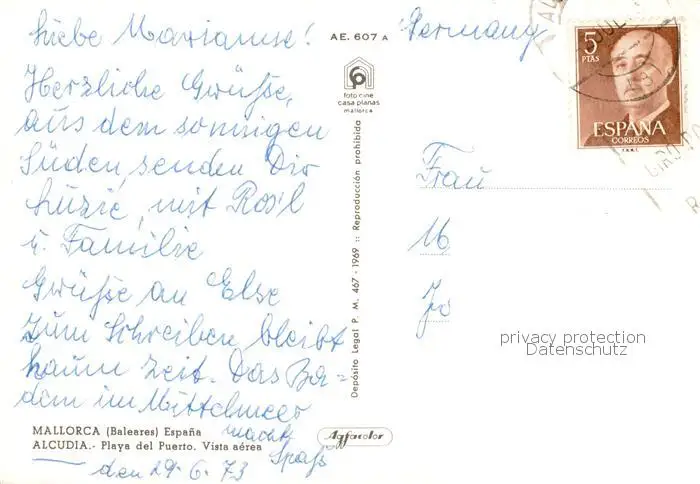 Liebe Marianne!
Herzliche Grüße,
aus dem sonnigen
Süden, senden Dir
mit Ros'l
u. Familie
Grüße an Else
zum Schreiben bleibt
kaum Zeit. Das Ba=
dem im Mittelmeer
macht
Spaß
den 29.6.73
MALLORCA (Baleares) España
ALCUDIA.- Playa del Puerto. Vista aérea
AE. 607 A
foto cine
casa planas
mallorca
Depósito Legal P. M. 467 - 1969 :: Reproducción prohibida
Agfacolor
Germany
5
PTAS
ESPAÑA
CORREOS
Frau
M
Jo
privacy protection
Datenschutz